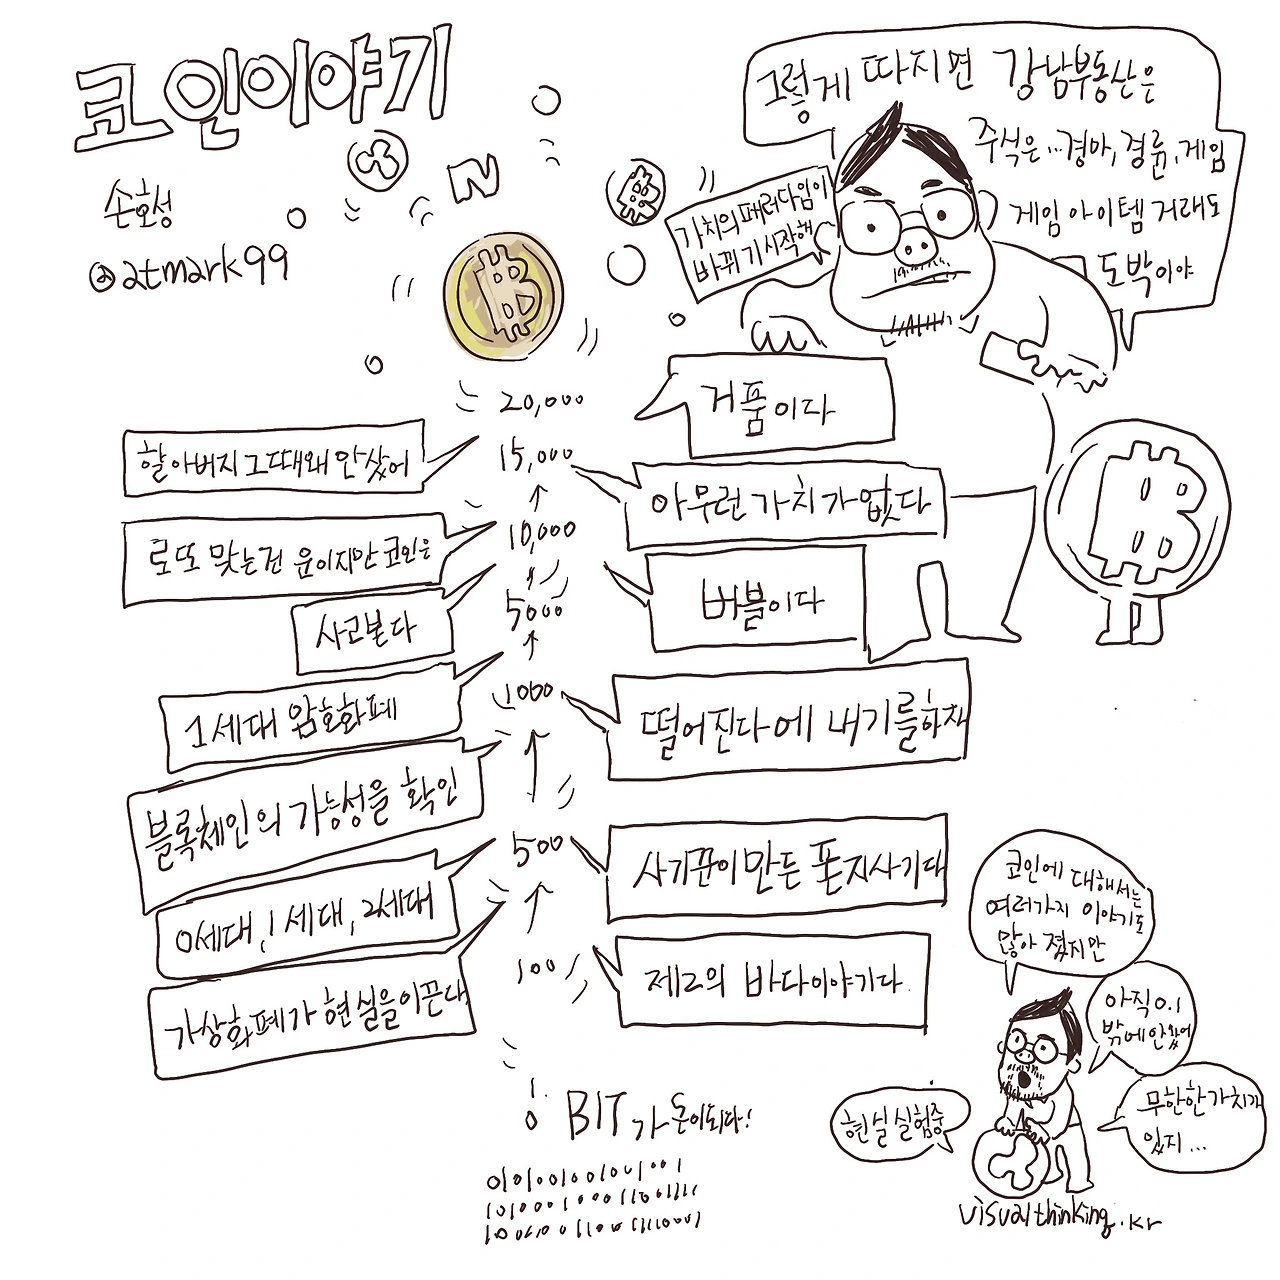 코인이야기
손호성
@atmark99
그렇게 따지면 강남부동산은
주식은...경마,경륜,게임
게임 아이템 거래도
도박이야
가치의 패러다임이
바뀌기 시작해
20,000
거품이다
할아버지 그때왜 안샀어
15,000
아무런 가치가 없다
로또 맞는건 운이지만 코인은
10,000
버블이다
사고본다
5000
1세대 암호화폐
1000
떨어진다에 내기를하자
블록체인의 가능성을 확인
500
사기꾼이 만든 폰지사기다
0세대, 1세대, 2세대
100
제2의 바다이야기다.
가상화폐가 현실을이끈다
1
0
BIT가 돈이되다!
코인에 대해서는
여러가지 이야기도
많아 졌지만
아직 0.1
밖에안왔어
무한한가치가
있지...
현실실험중
visualthinking.kr